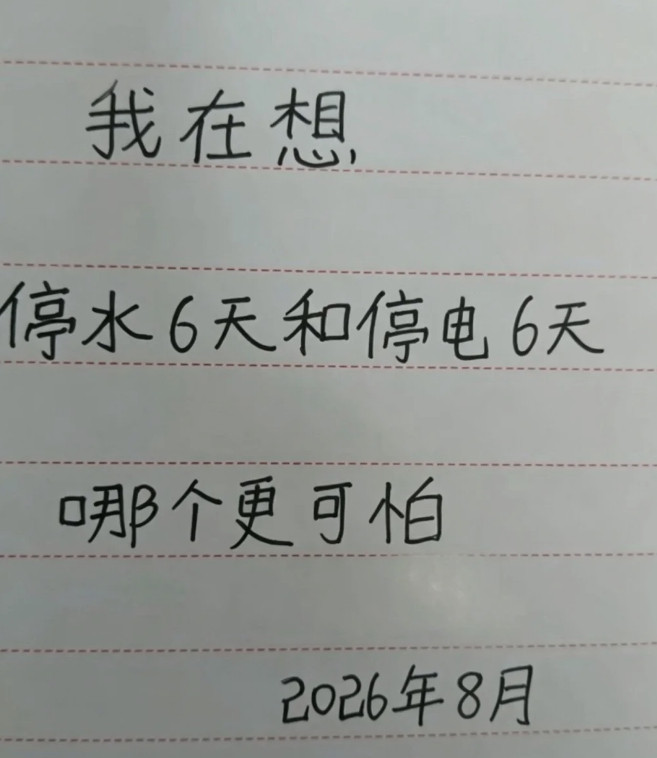 我在想
停水6天和停电6天
哪个更可怕
2026年8月